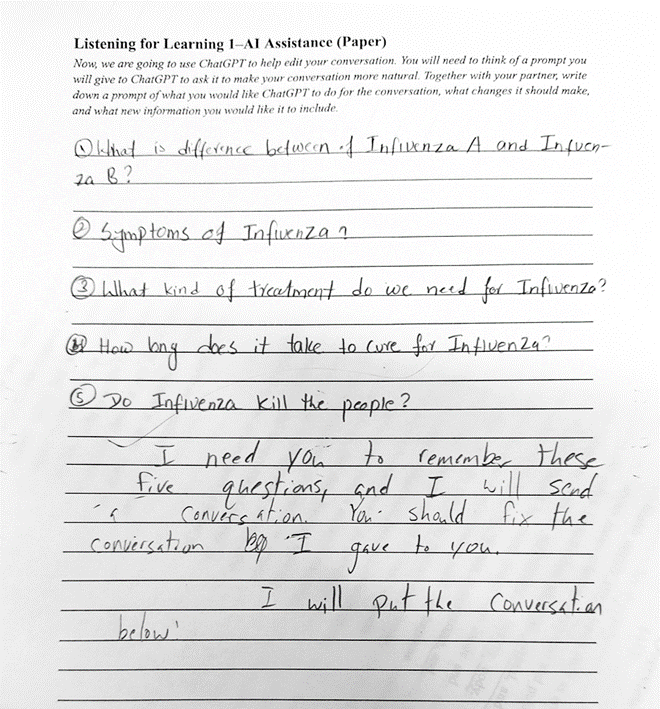 Listening for Learning 1–AI Assistance (Paper)
Now, we are going to use ChatGPT to help edit your conversation. You will need to think of a prompt you
will give to ChatGPT to ask it to make your conversation more natural. Together with your partner, write
down a prompt of what you would like ChatGPT to do for the conversation, what changes it should make,
and what new information you would like it to include.
① What is difference between of Influenza A and Influen-
za B?
② Symptoms of Influenza?
③ What kind of treatment do we need for Influenza?
④ How long does it take to cure for Influenza?
⑤ Do Influenza kill the people?
I need you to remember these
five questions, and I will send
a conversation. You should fix the
conversation I gave to you.
I will put the conversation
below: